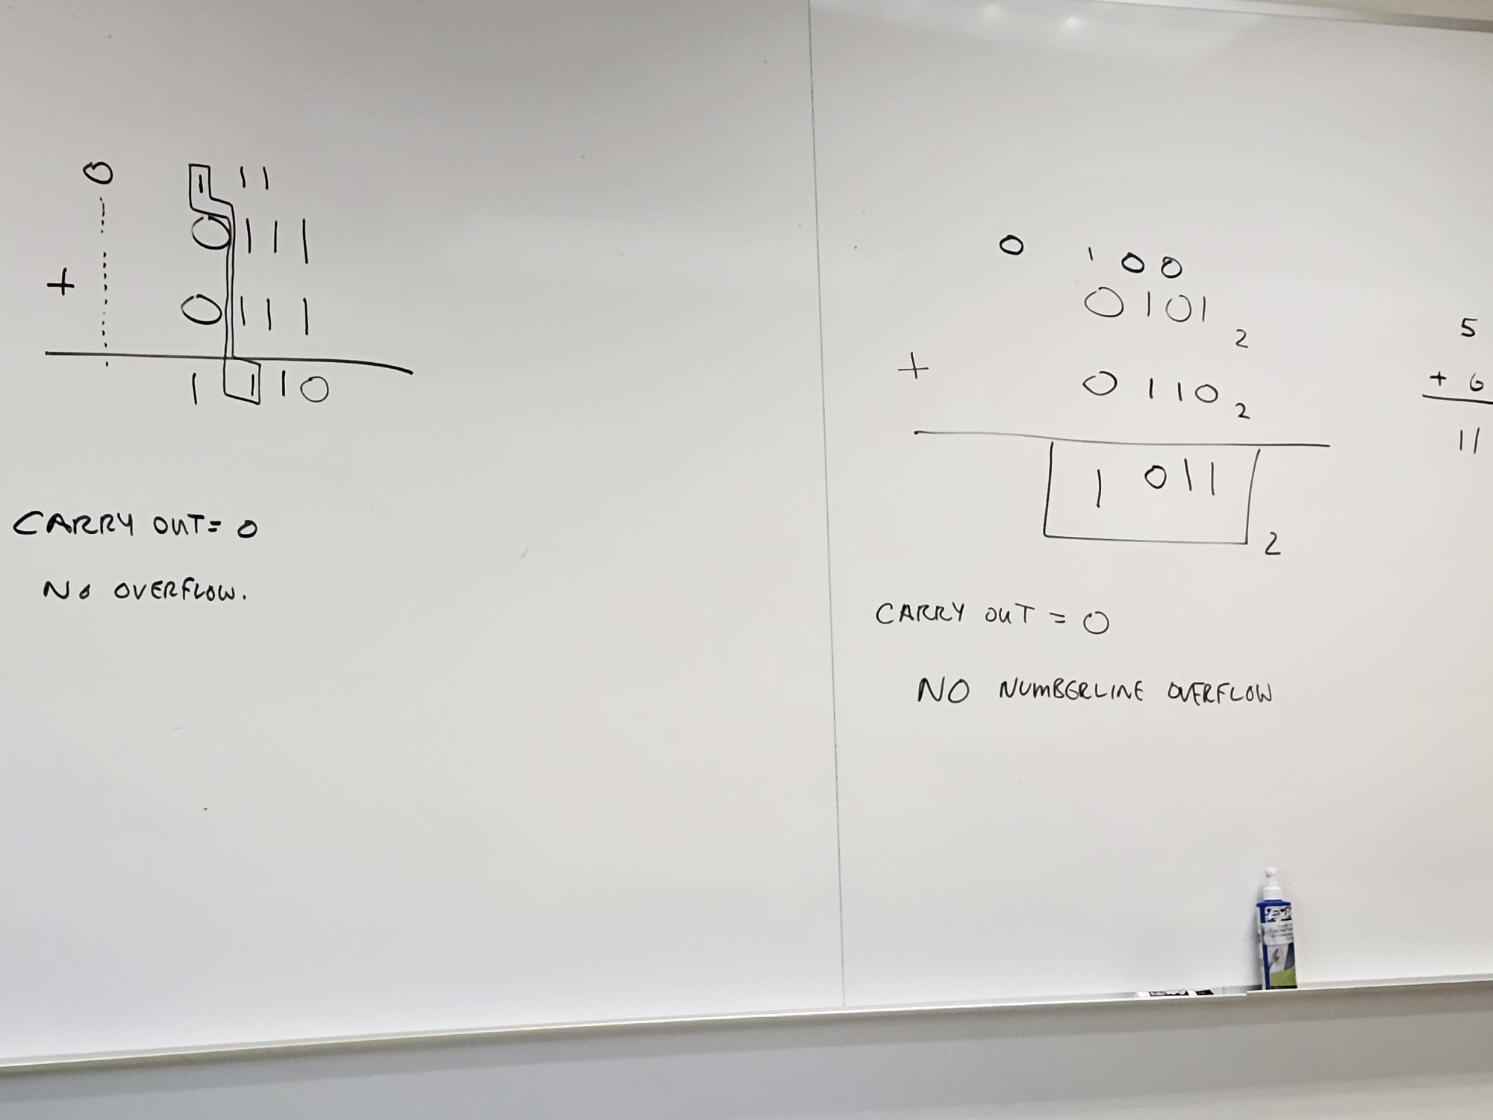 0 1 1 1
0 1 1 1
+ 0 1 1 1
1 1 1 0
CARRY OUT = 0
NO OVERFLOW.
0 1 0 0
0 1 0 1 2
+ 0 1 1 0 2
1 0 1 1 2
CARRY OUT = 0
NO NUMBERLINE OVERFLOW
5
+ 6
11